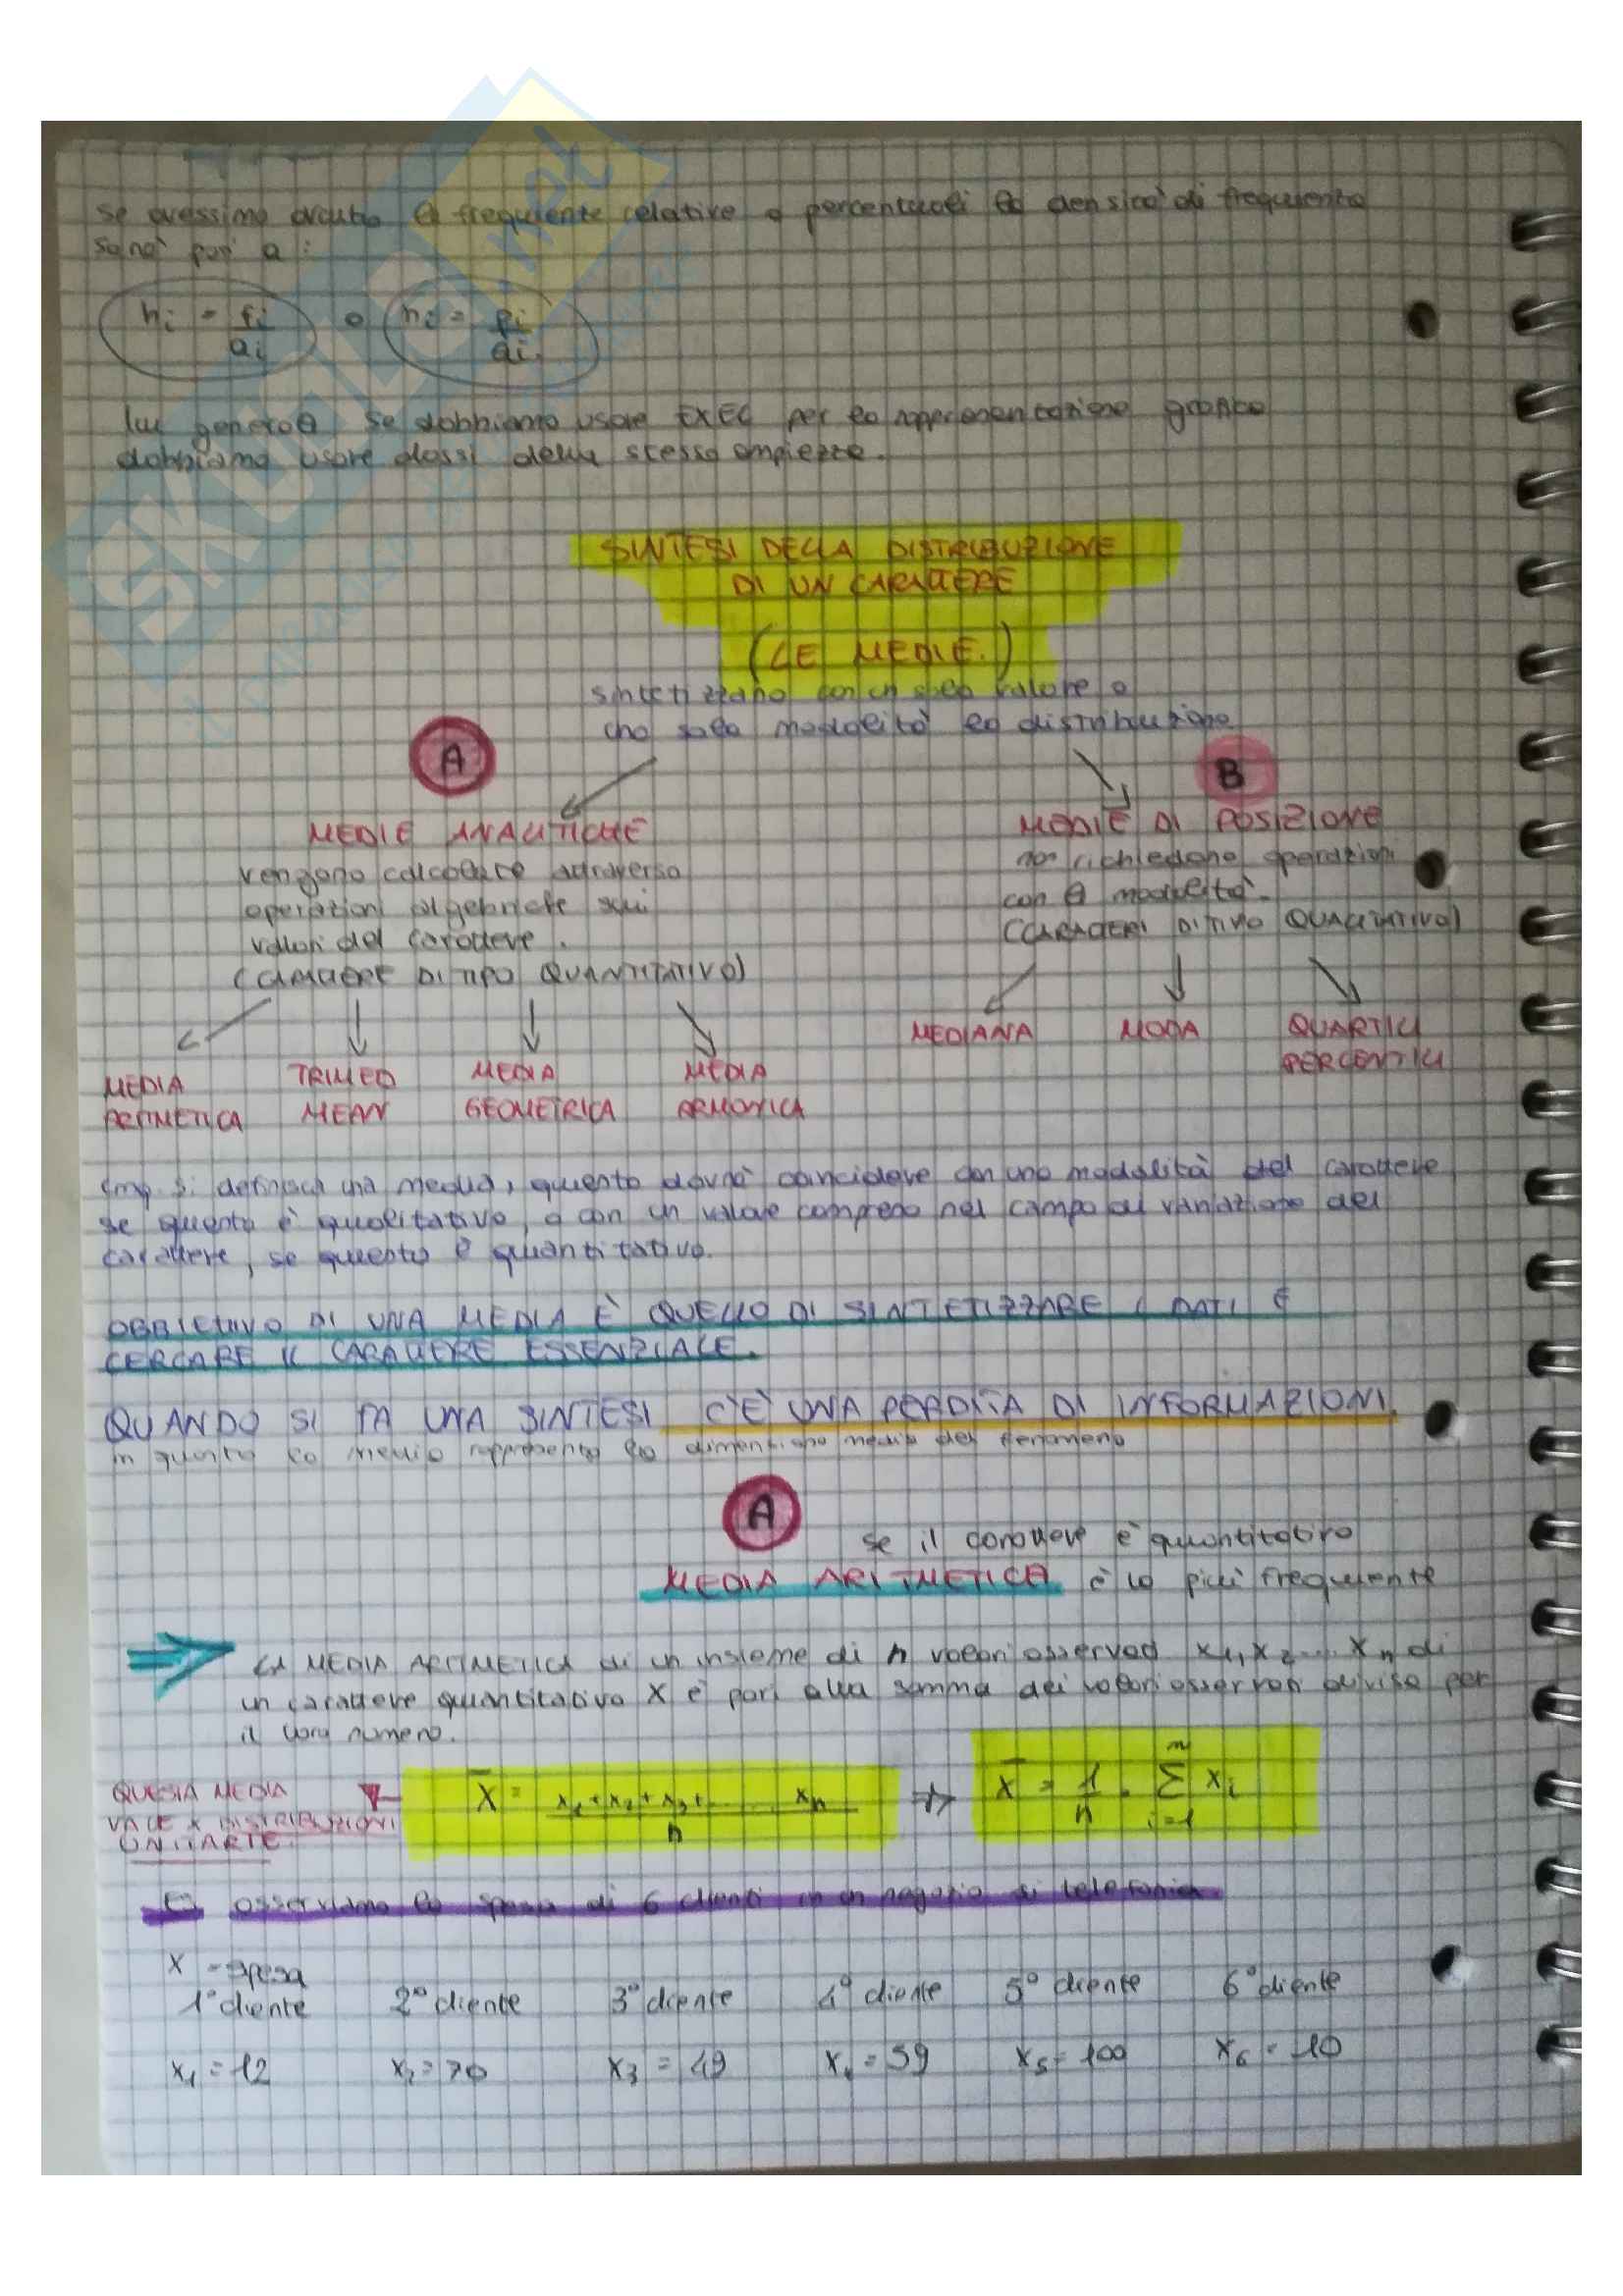 se avessimo avuto le frequenze relative o percentuali la densità di frequenza
sarà pari a:
hi = fi/ai o hi = pi/ai
In generale se dobbiamo usare EXEC per la rappresentazione grafica
dobbiamo usare classi della stessa ampiezza.
SINTESI DELLA DISTRIBUZIONE
DI UN CARATTERE
(LE MEDIE.)
sintetizzano con un solo valore o
una sola modalità la distribuzione
A
B
MEDIE ANALITICHE
vengono calcolate attraverso
operazioni algebriche sui
valori del carattere.
(CARATTERE DI TIPO QUANTITATIVO)
MEDIE DI POSIZIONE
non richiedono operazioni
con le modalità.
(CARATTERI DI TIVO QUALITATIVO)
MEDIA ARITMETICA
TRIMED MEAN
MEDIA GEOMETRICA
MEDIA ARMONICA
MEDIANA
MODA
QUARTILI
PERCENTILI
si definisca una media, questa dovrà coincidere con una modalità del carattere
se questo è qualitativo, o con un valore compreso nel campo di variazione del
carattere, se questo è quantitativo.
OBBIETTIVO DI UNA MEDIA È QUELLO DI SINTETIZZARE I DATI E
CERCARE IL CARATTERE ESSENZIALE.
QUANDO SI FA UNA SINTESI C'È UNA PERDITA DI INFORMAZIONI
in quanto la media rappresenta la dimensione media del fenomeno
A
se il carattere è quantitativo
MEDIA ARITMETICA è la più frequente
LA MEDIA ARITMETICA di un insieme di n valori osservati x1, x2 ... xn di
un carattere quantitativo X è pari alla somma dei valori osservati diviso per
il loro numero.
QUESTA MEDIA
VALE X DISTRIBUZIONI
UNITARIE.
X̄ = x1 + x2 + x3 + ... xn / n ⇒ X̄ = 1/n · Σ i=1 n xi
ES osserviamo la spesa di 6 clienti in un negozio di telefonia.
X = spesa
1° cliente 2° cliente 3° cliente 4° cliente 5° cliente 6° cliente
x1 = 12 x2 = 70 x3 = 49 x4 = 59 x5 = 100 x6 = 10
SKUOLA.net